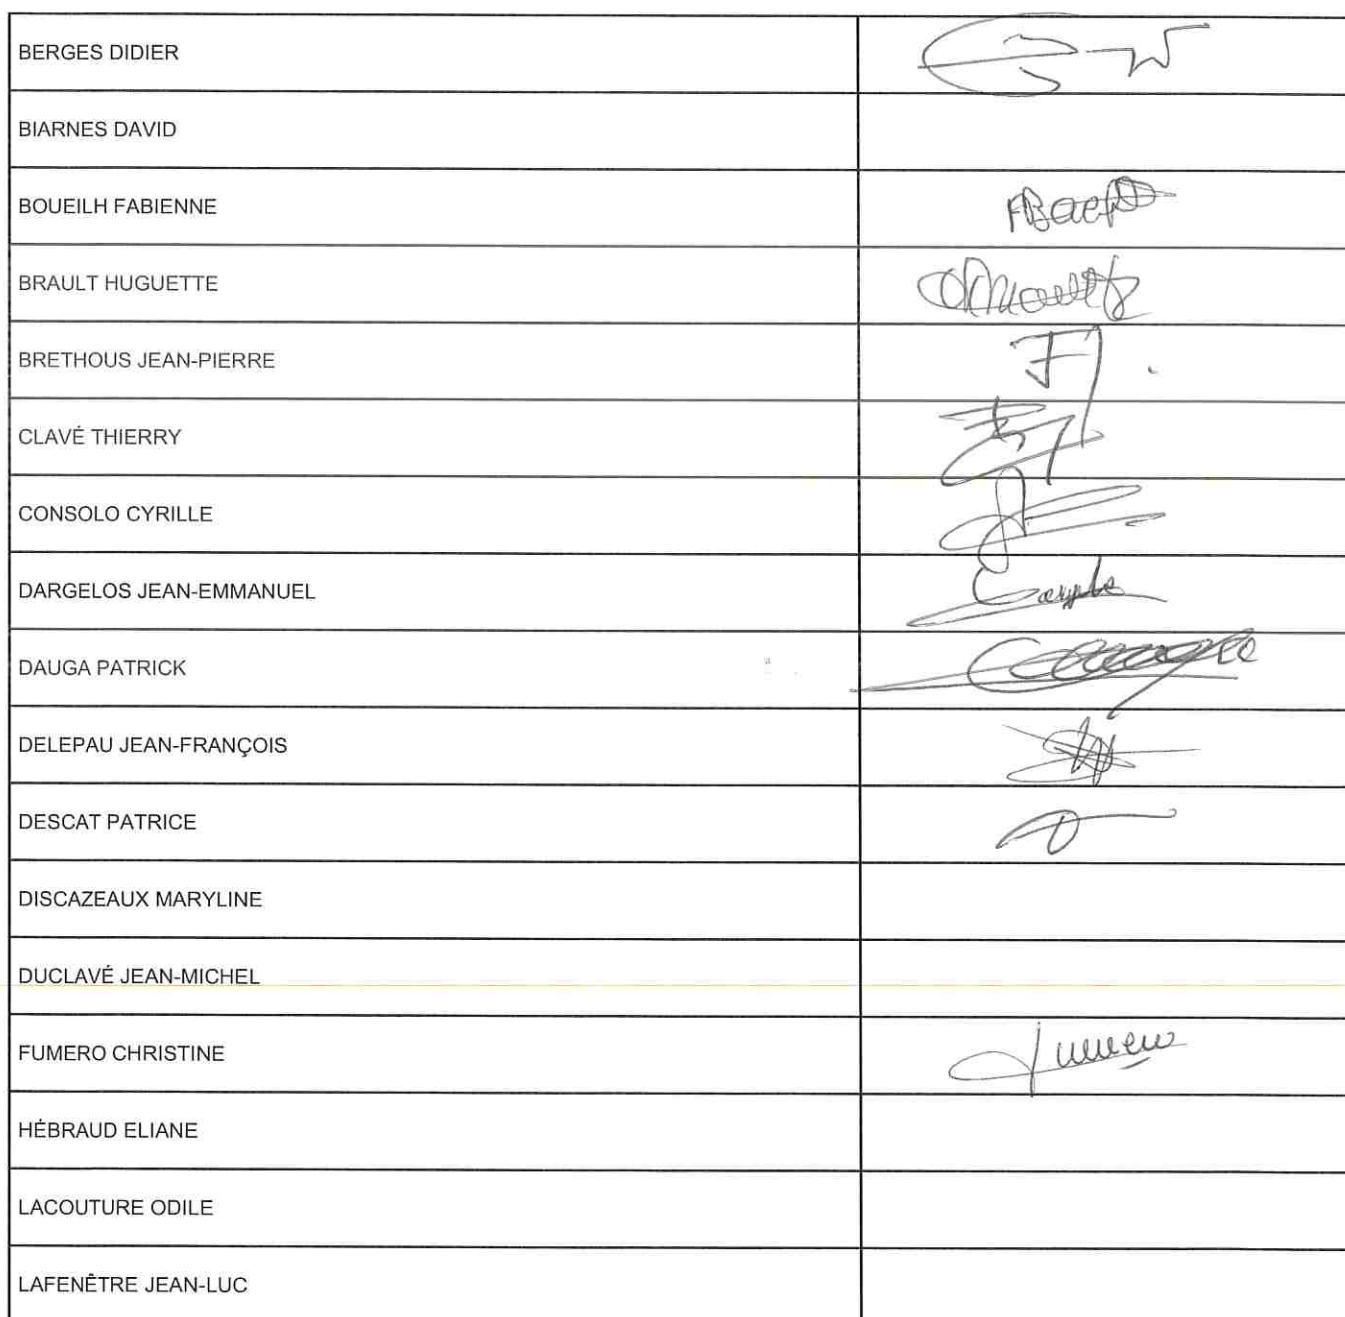 BERGES DIDIER
BIARNES DAVID
BOUEILH FABIENNE
BRAULT HUGUETTE
BRETHOUS JEAN-PIERRE
CLAVÉ THIERRY
CONSOLO CYRILLE
DARGELOS JEAN-EMMANUEL
DAUGA PATRICK
DELEPAU JEAN-FRANÇOIS
DESCAT PATRICE
DISCAZEAUX MARYLINE
DUCLAVÉ JEAN-MICHEL
FUMERO CHRISTINE
HÉBRAUD ELIANE
LACOUTURE ODILE
LAFENÊTRE JEAN-LUC